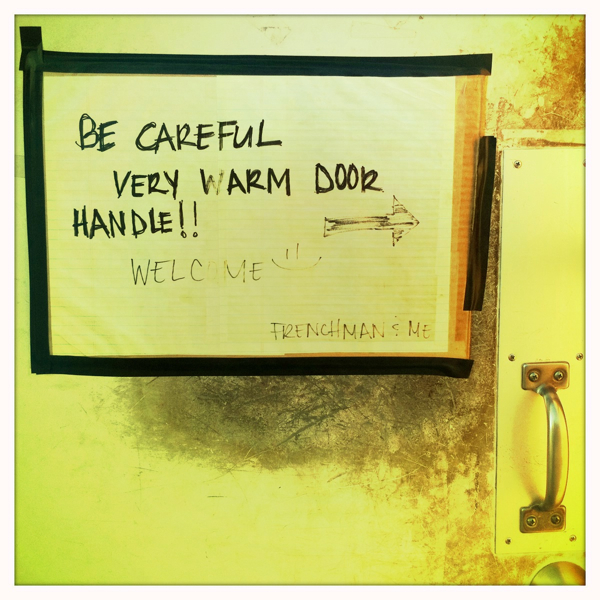 BE CAREFUL
VERY WARM DOOR
HANDLE!!
WELCOME
FRENCHMAN & ME